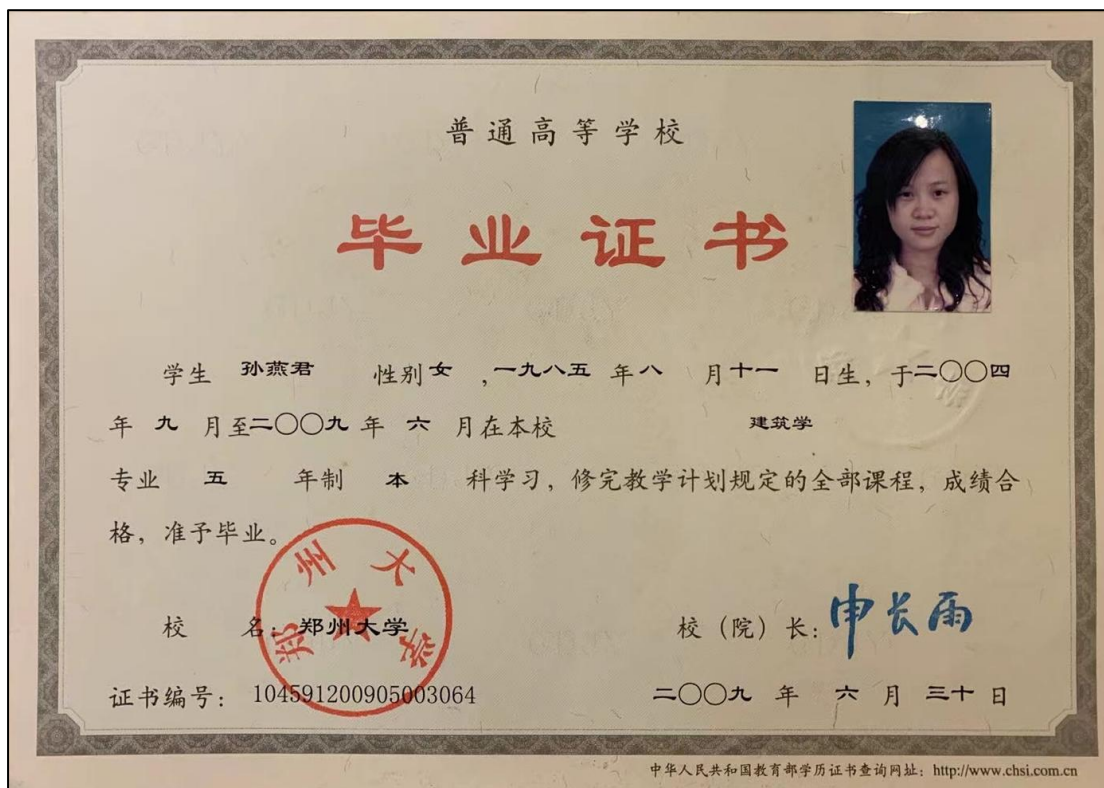 普通高等学校
毕业证书
学生 孙燕君 性别 女 ,一九八五 年 八 月 十一 日生，于二〇〇四
年 九 月至二〇〇九 年 六 月在本校 建筑学
专业 五 年制 本 科学习，修完教学计划规定的全部课程，成绩合
格，准予毕业。
郑州大学
校 名：郑州大学 校（院）长：申长雨
证书编号： 104591200905003064 二〇〇九 年 六 月 三十 日
中华人民共和国教育部学历证书查询网址：http://www.chsi.com.cn